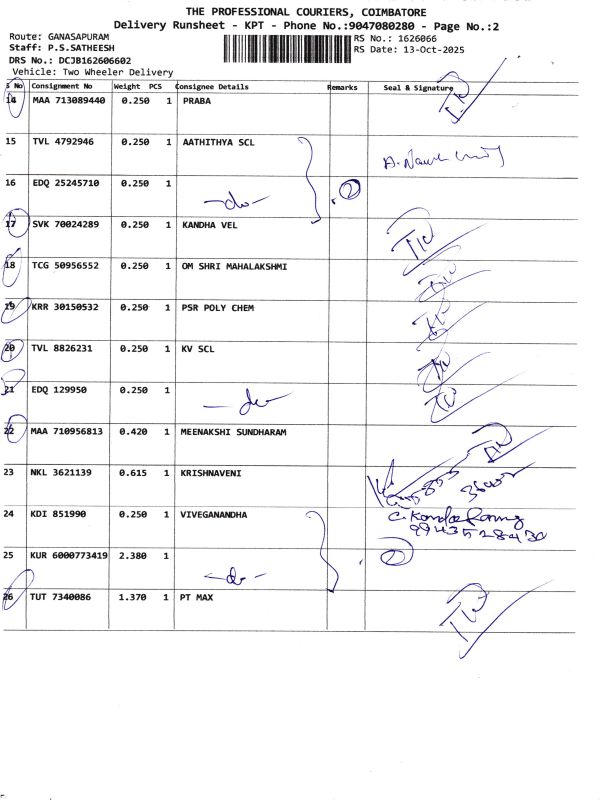 THE PROFESSIONAL COURIERS, COIMBATORE
Delivery Runsheet - KPT - Phone No.:9047080280 - Page No.:2
Route: GANASAPURAM
RS No.: 1626066
Staff: P.S.SATHEESH
RS Date: 13-Oct-2025
DRS No.: DCJB162606602
Vehicle: Two Wheeler Delivery
S No Consignment No Weight PCS Consignee Details Remarks Seal & Signature
14 MAA 713089440 0.250 1 PRABA
15 TVL 4792946 0.250 1 AATHITHYA SCL
16 EDQ 25245710 0.250 1 -do- 2
17 SVK 70024289 0.250 1 KANDHA VEL
18 TCG 50956552 0.250 1 OM SHRI MAHALAKSHMI
19 KRR 30150532 0.250 1 PSR POLY CHEM
20 TVL 8826231 0.250 1 KV SCL
21 EDQ 129950 0.250 1 -do-
22 MAA 710956813 0.420 1 MEENAKSHI SUNDHARAM
23 NKL 3621139 0.615 1 KRISHNAVENI
24 KDI 851990 0.250 1 VIVEGANANDHA
9943528430
25 KUR 6000773419 2.380 1 -do- 2
26 TUT 7340086 1.370 1 PT MAX